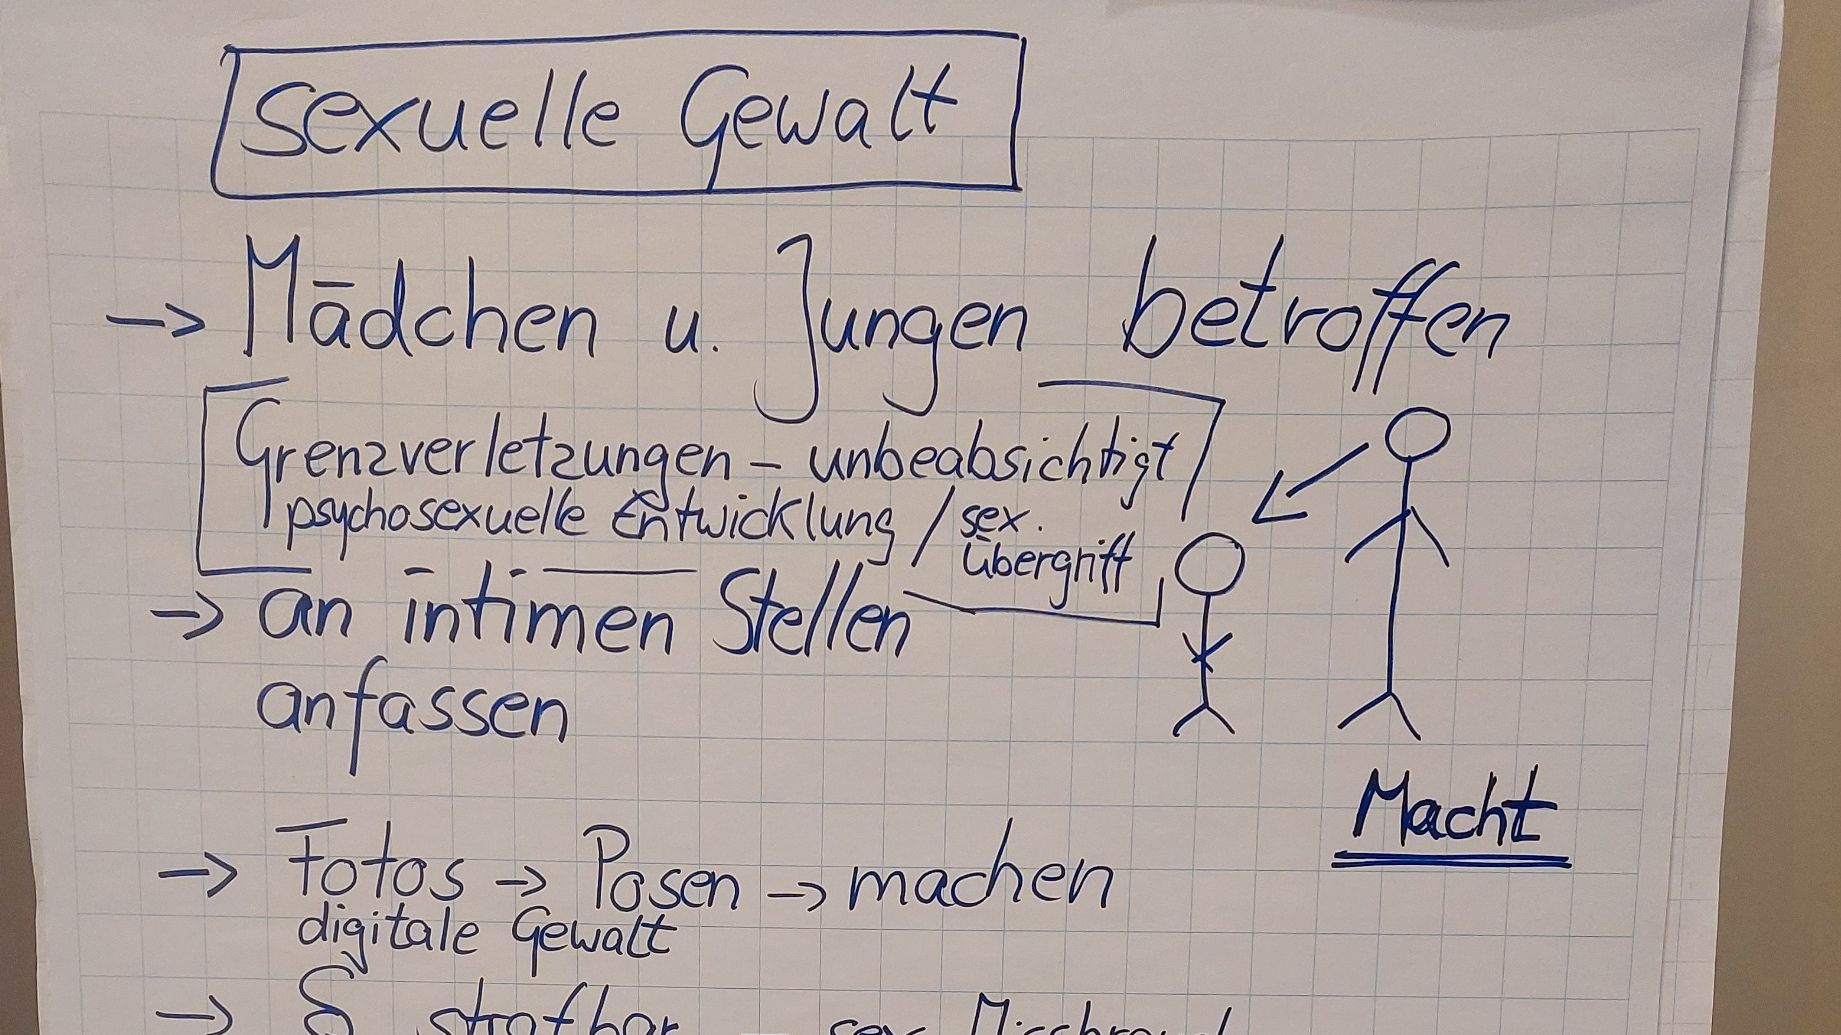 sexuelle Gewalt
-> Mädchen u. Jungen betroffen
Grenzverletzungen - unbeabsichtigt
psychosexuelle Entwicklung / sex.
Übergriff
-> an intimen Stellen
anfassen
Macht
-> Fotos -> Posen -> machen
digitale Gewalt
-> § strafbar - sex. Missbrauch